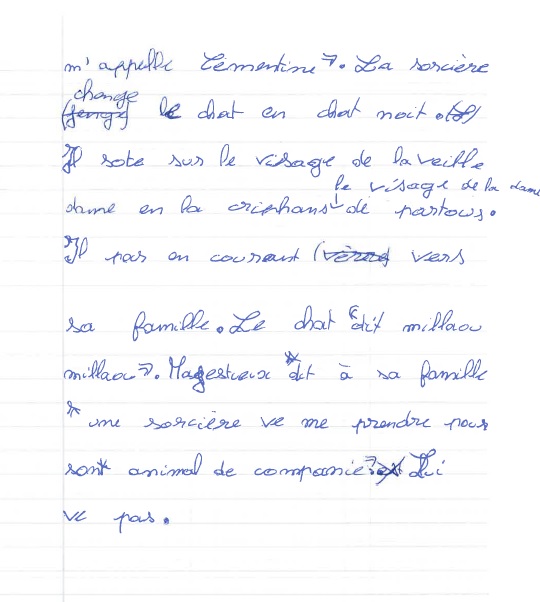 m'appelle Clémentine ». La sorcière
change
le chat en chat noit.
Il sote sur le visage de la veille
le visage de la dame
dame en la criphans de partous.
Il par en courant vers
sa famille. Le chat "dit millaou
millaou ». Magestueux dit à sa famille
" une sorcière ve me prendre pour
sont animal de companie ». Lui
ve pas.